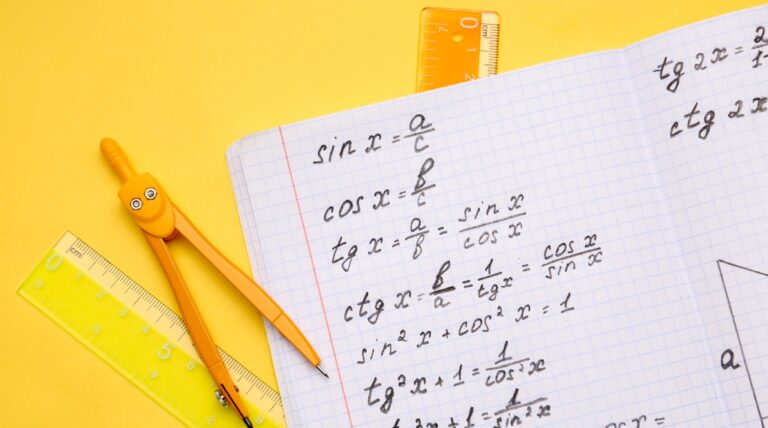 sin x = a/c
cos x = b/c
tg x = a/b = sin x/cos x
ctg x = b/a = 1/tg x = cos x/sin x
sin² x + cos² x = 1
tg² x + 1 = 1/cos² x
tg² x + 1 = 1/sin² x
cos x =
tg 2x = 2
ctg 2x
a
0 cm 1 2
cm 0 5